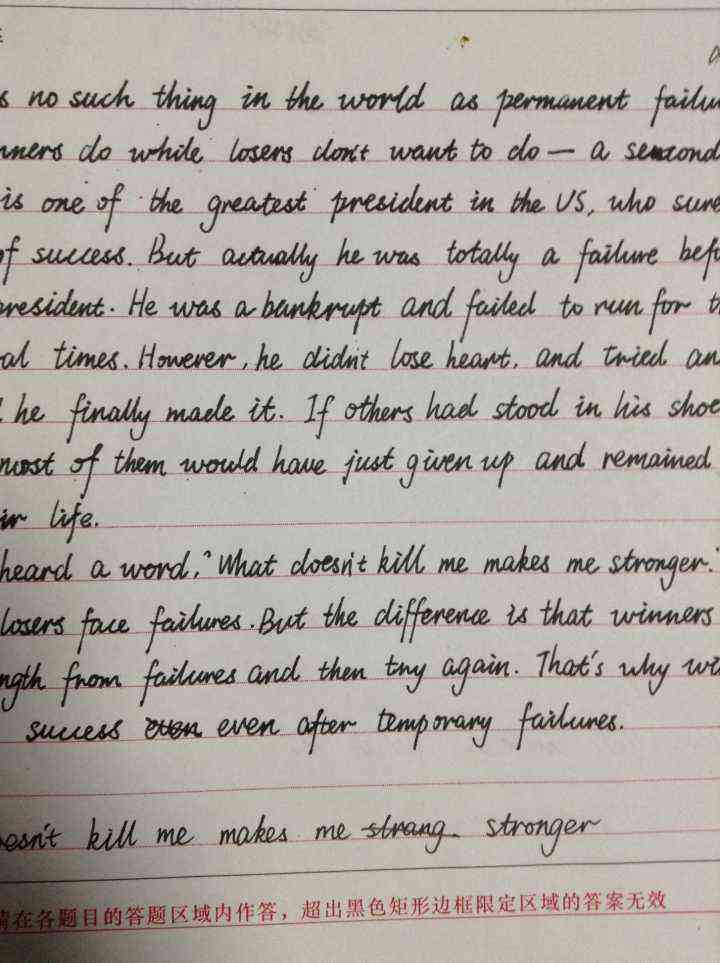 s no such thing in the world as permanent failu
nners do while losers don't want to do — a second
is one of the greatest president in the US, who sure
of success. But actually he was totally a failure bef
president. He was a bankrupt and failed to run for t
al times. However, he didn't lose heart, and tried an
he finally made it. If others had stood in his shoe
most of them would have just given up and remained
ir life.
heard a word, "What doesn't kill me makes me stronger."
losers face failures. But the difference is that winners
ngth from failures and then try again. That's why wi
success even even after temporary failures.
esn't kill me makes me strang stronger
请在各题目的答题区域内作答，超出黑色矩形边框限定区域的答案无效